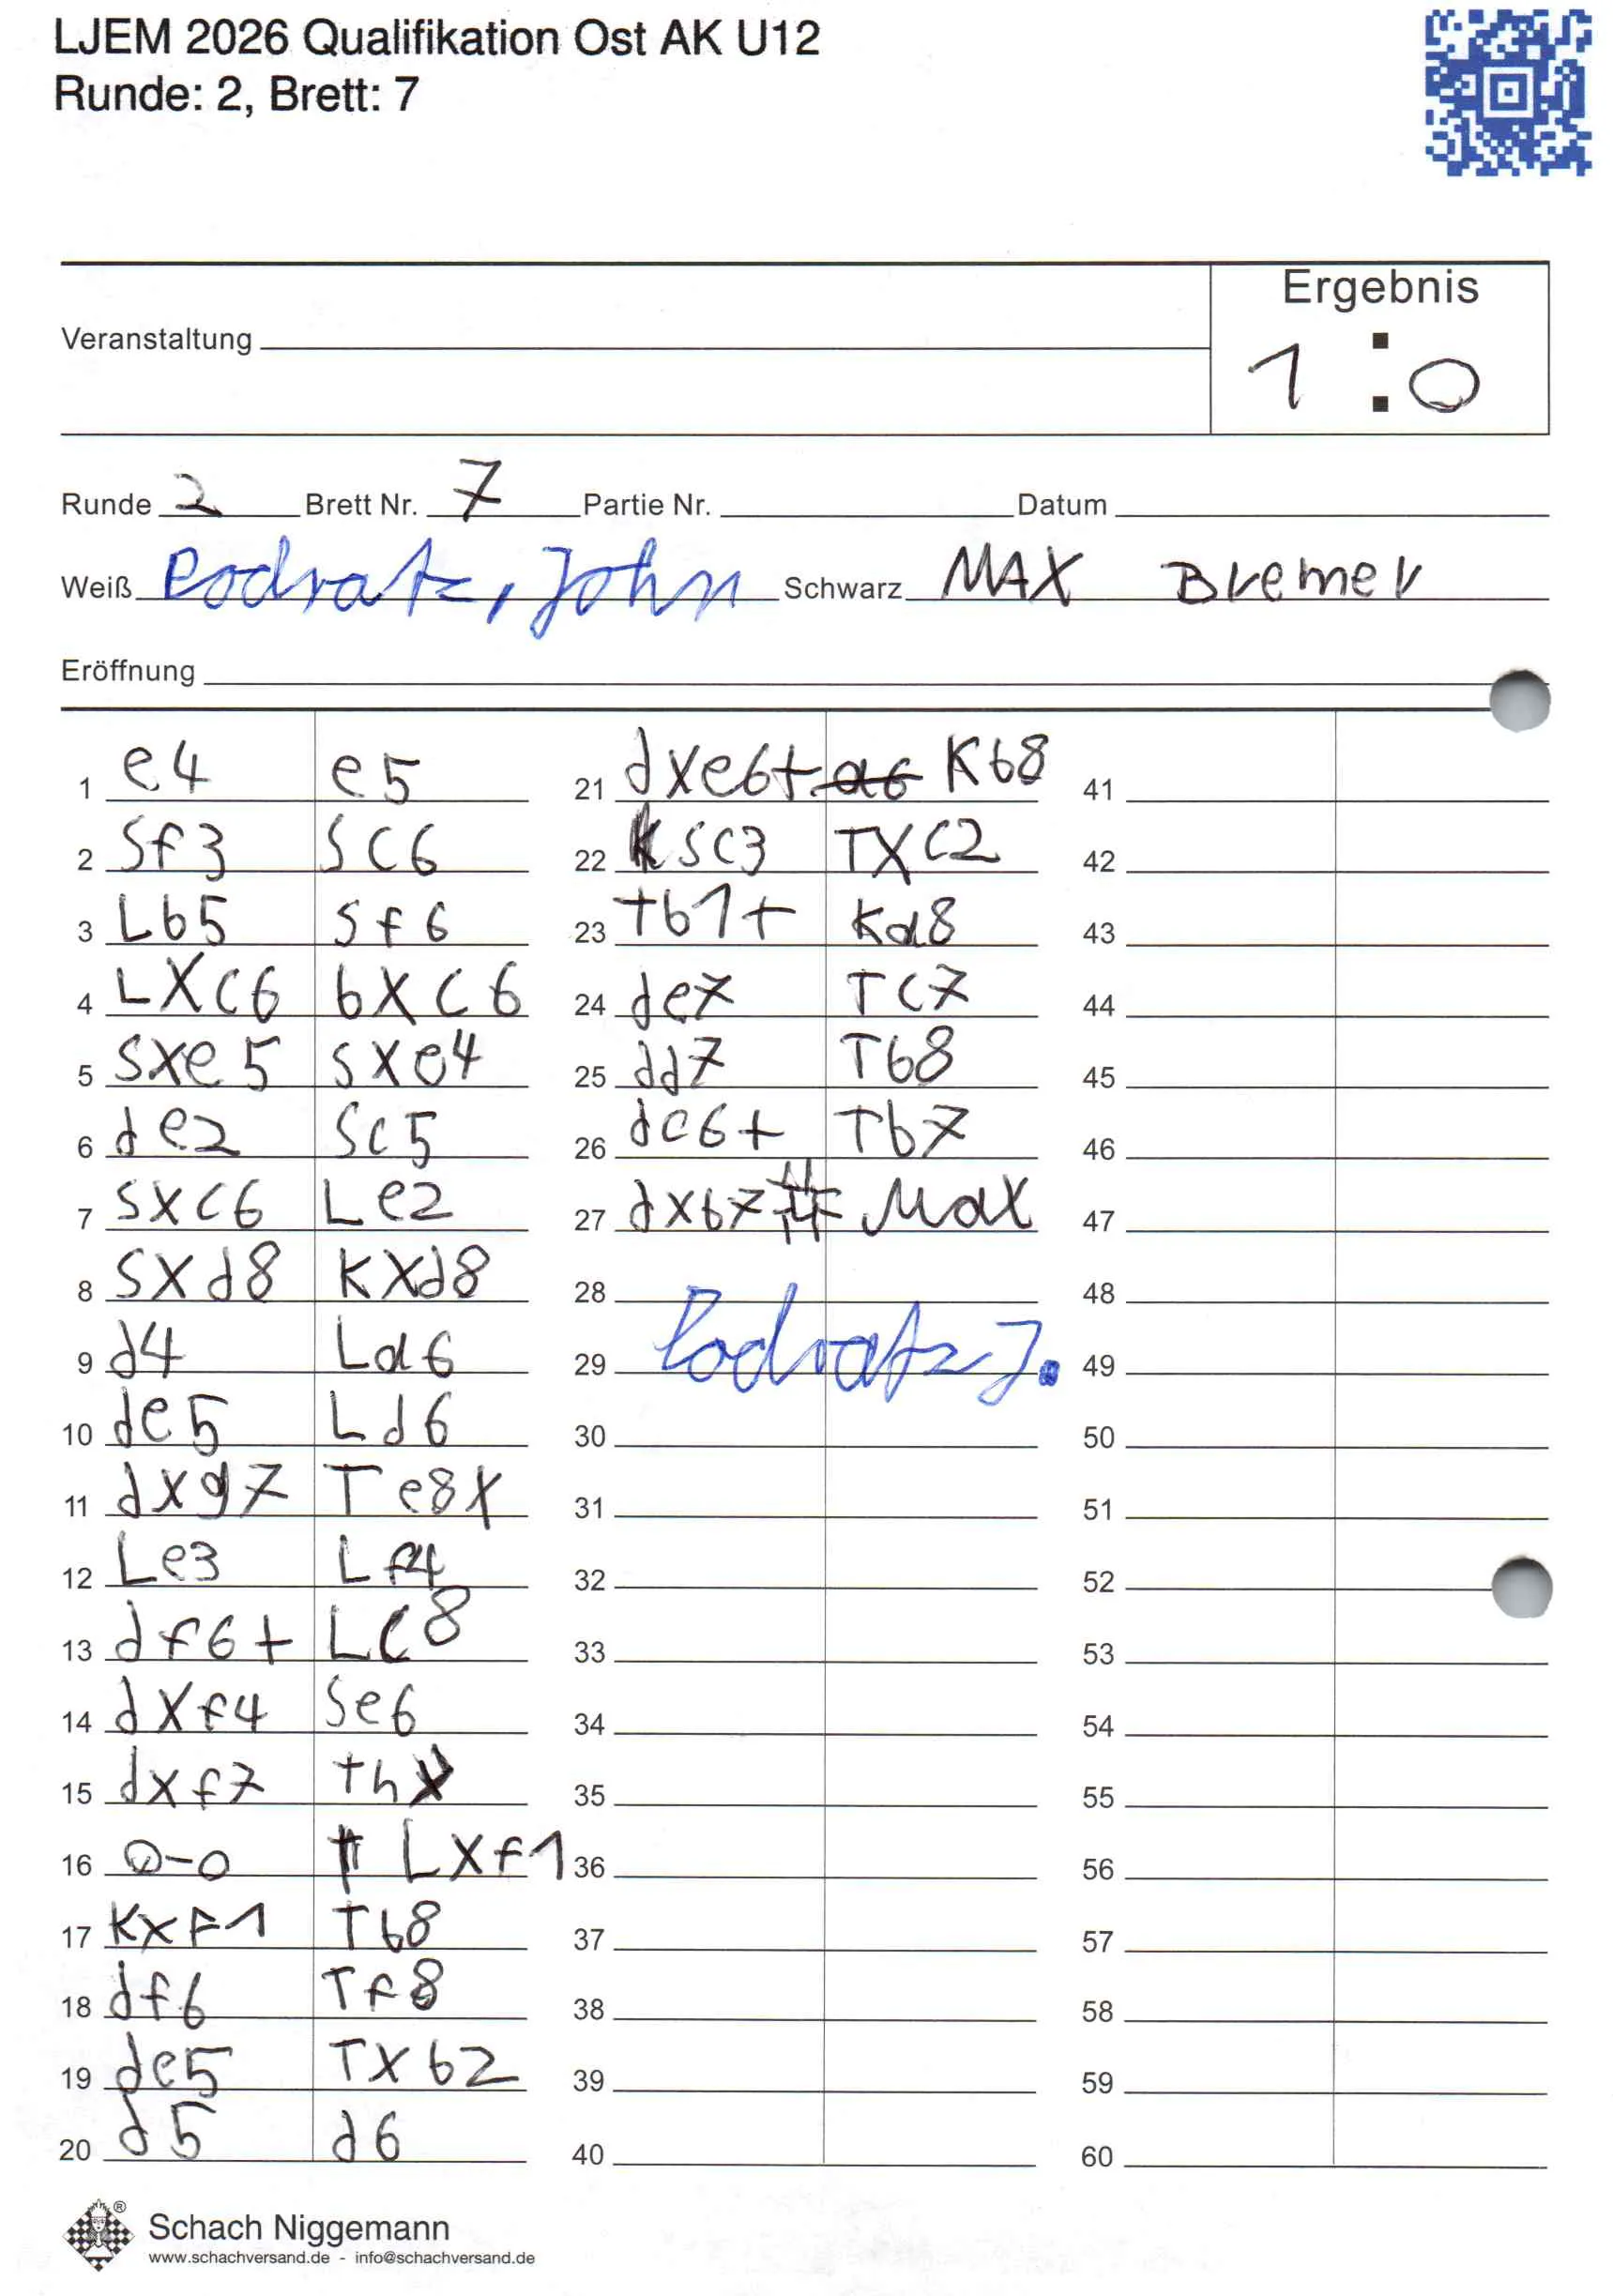 LJEM 2026 Qualifikation Ost AK U12
Runde: 2, Brett: 7
Ergebnis
Veranstaltung
1 : 0
Runde 2 Brett Nr. 7 Partie Nr. Datum
Weiß Podratz, John Schwarz MAX Bremer
Eröffnung
1 e4 e5
2 Sf3 Sc6
3 Lb5 Sf6
4 LXC6 bXC6
5 SXe5 SXe4
6 de2 Sc5
7 SXC6 Le2
8 SXd8 KXd8
9 d4 La6
10 de5 Ld6
11 dXg7 Te8X
12 Le3 Lf4
13 df6+ LC8
14 dXf4 Se6
15 dxf7 th
16 0-0 LXf1
17 KXF1 Tb8
18 df6 Tf8
19 de5 TXb2
20 d5 d6
21 dxe6+ a6 Kb8
22 SC3 TXC2
23 tb1+ Ka8
24 de7 TC7
25 dd7 Tb8
26 dc6+ Tb7
27 dxb7# Max
28
29 Podratz J.
30
31
32
33
34
35
36
37
38
39
40
41
42
43
44
45
46
47
48
49
50
51
52
53
54
55
56
57
58
59
60
Schach Niggemann
www.schachversand.de - info@schachversand.de